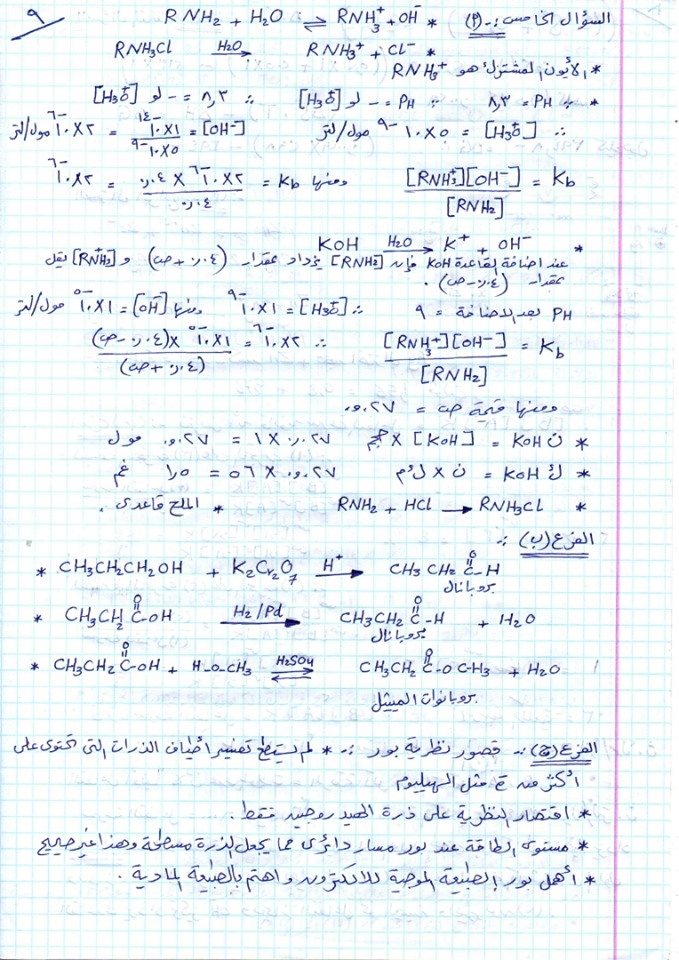 ٩
السؤال الخامس :- (أ) * RNH₂ + H₂O ⇌ RNH₃⁺ + OH⁻
* RNH₃Cl —H₂O→ RNH₃⁺ + Cl⁻
* الأيون المشترك هو RNH₃⁺
* ∵ PH = ٨,٣ ∵ PH = - لو [H₃O⁺] ∴ ٨,٣ = - لو [H₃O⁺]
∴ [H₃O⁺] = ٥×١٠⁻⁹ مول/لتر [OH⁻] = ١×١٠⁻¹⁴ / ٥×١٠⁻⁹ = ٢×١٠⁻⁶ مول/لتر
Kb = [RNH₃⁺][OH⁻] / [RNH₂] ومنها Kb = ٢×١٠⁻⁶ × ٠,٤ / ٠,٤ = ٢×١٠⁻⁶
* KOH —H₂O→ K⁺ + OH⁻
عند اضافة القاعدة KOH فإن [RNH₂] يزداد بمقدار (٠,٤ + ص) و [RNH₃⁺] يقل
بمقدار (٠,٤ - ص) .
PH بعد الاضافة = ٩ ∴ [H₃O⁺] = ١×١٠⁻⁹ ومنها [OH⁻] = ١×١٠⁻⁵ مول/لتر
Kb = [RNH₃⁺][OH⁻] / [RNH₂] ∴ ٢×١٠⁻⁶ = ١×١٠⁻⁵ × (٠,٤ - ص) / (٠,٤ + ص)
ومنها قيمة ص = ٠,٢٧
* ن KOH = [KOH] × حجم ٠,٢٧ × ١ = ٠,٢٧ مول
* ك KOH = ن × ك.م ٠,٢٧ × ٥٦ = ١,٥ غم
* RNH₂ + HCl → RNH₃Cl * الملح قاعدي .
الفرع (ب) :-
* CH₃CH₂CH₂OH + K₂Cr₂O₇ —H⁺→ CH₃CH₂C(=O)-H
بروبانال
* CH₃CH₂C(=O)-OH —H₂/Pd→ CH₃CH₂C(=O)-H + H₂O
بروبانال
* CH₃CH₂C(=O)-OH + H-O-CH₃ —H₂SO₄⇌ CH₃CH₂C(=O)-OCH₃ + H₂O
بروبانوات الميثيل
الفرع (ج) :- قصور نظرية بور :- * لم يستطع تفسير أطياف الذرات التي تحتوي على
أكثر من e مثل الهيليوم
* اقتصار النظرية على ذرة الهيدروجين فقط .
* مستوى الطاقة عند بور مسار دائري مما يجعل الذرة مسطحة وهذا غير صحيح
* أهمل بور الطبيعة الموجية للالكترون واهتم بالطبيعة المادية .